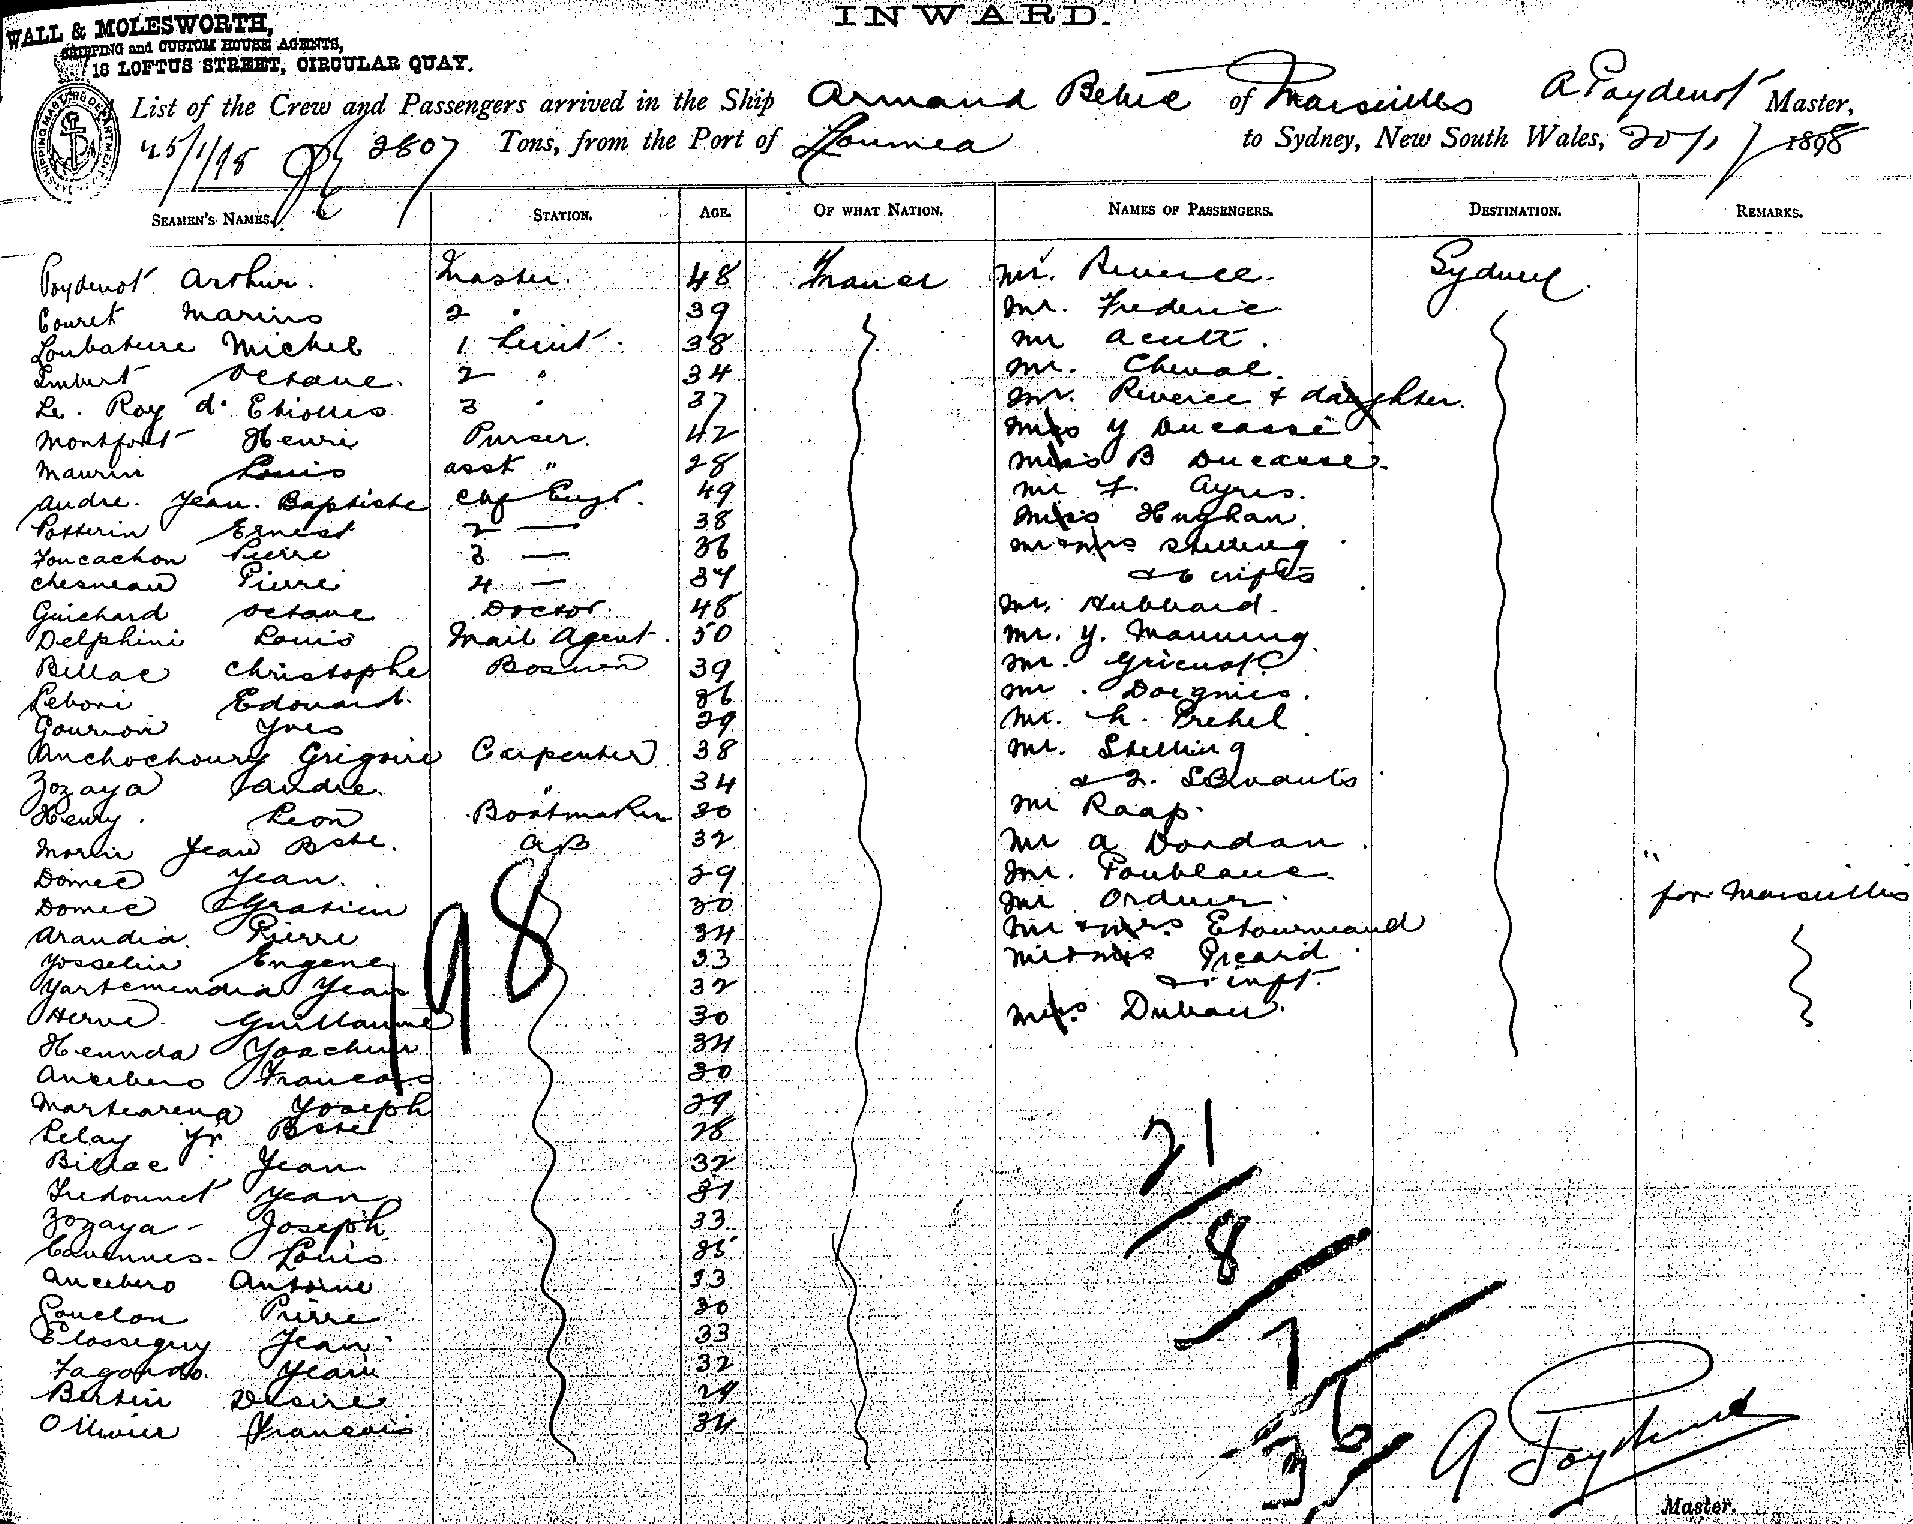 INWARD.
WALL & MOLESWORTH,
SHIPPING and CUSTOM HOUSE AGENTS,
18 LOFTUS STREET, CIRCULAR QUAY.
List of the Crew and Passengers arrived in the Ship Armand Behic of Marseilles A Poydenot Master,
25/1/98 2807 Tons, from the Port of Noumea to Sydney, New South Wales, 20/1/1898
SEAMEN'S NAMES. STATION. AGE. OF WHAT NATION. NAMES OF PASSENGERS. DESTINATION. REMARKS.
Poydenot Arthur. Master. 48 France Mr. Riverce. Sydney
Couret Marius 2 " 39 Mr. Frederic
Loubatiere Michel 1 Lieut. 38 Mr Acutt.
Imbert Octave. 2 " 34 Mr. Cheval.
Le. Roy d' Etiolles 3 " 37 Mr. Riverce & daughter.
Montfort Henri Purser. 42 Miss Y Ducasse
Maurin Louis asst " 28 Miss B Ducasse.
Andre. Jean. Baptiste Chf Engr. 49 Mr F. Ayres.
Potterin Ernest 2 — 38 Miss Hughan.
Foucachon Pierre 3 — 36 Mr & Mrs Stelling
Chesneau Pierre 4 — 37 & 6 infts
Guichard Octave Doctor. 48 Mr. Hubbard.
Delphini Louis Mail Agent. 50 Mr. Y. Manning
Billac Christophe Bosmen 39 Mr.
Leboni Edouard. 36 Mr. Doignies.
Gourvoi Yves 29 Mr. h. Prehel
Anchochoury Grigoire Carpenter 38 Mr. Stelling
Zozaya Andre. " 34 & 2. Servants
Henry. Leon Boatmaker 30 Mr Raap.
Morin Jean Bste. AB 32 Mr A Dordan.
Domec Jean. 29 Mr. Poublanc
Domec Gratien 30 Mr Ordner. for Marseilles
Arandia. Pierre 34 Mr & Mrs. Etourneaud
Josselin Eugene 33 Mr & Mrs Picard
Yartemendia Jean 32 & 1 inft.
Herve. Guillaume 30 Miss. Dubau.
Heunda Joachim 34
Ancebero Francois 30
Martearena Joseph 29
Lelay Jn Bste 28
Billac Jean 32
Fredounet Jean 31
Zozaya - Joseph 33
Cavennes. Louis 35
Ancebero Antoine 33
Gouelon Pierre 30
Elosseguy Jean 33
Fagondo. Jean 32
Bertin Desire 29
Ollivier Francois 34
198
21
8
7
36
3
A Poydenot
Master.